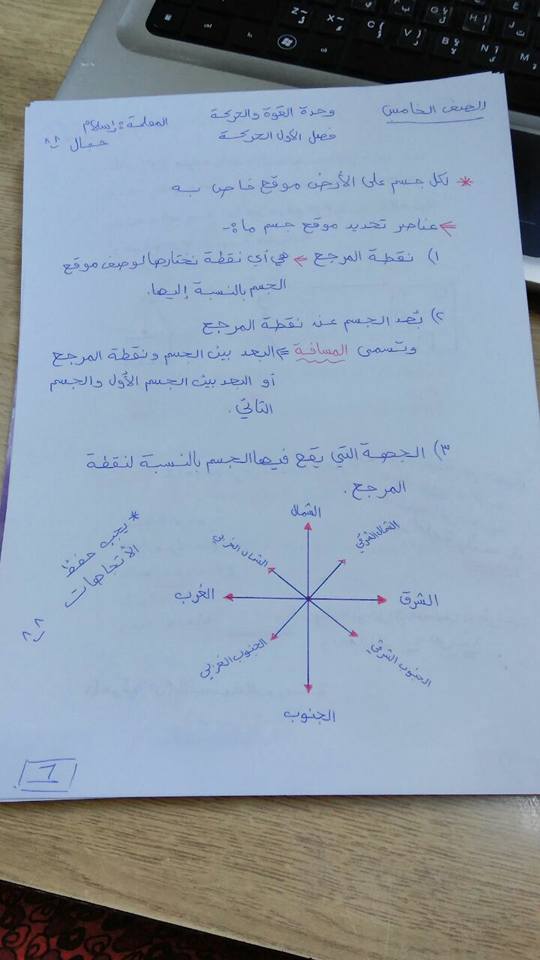 الصف الخامس
وحدة القوة والحركة
فصل الأول الحركة
المعلمة: إسلام
جمال ^_^
* لكل جسم على الأرض موقع خاص به
عناصر تحديد موقع جسم ما:-
١) نقطة المرجع ← هي أي نقطة نختارها لوصف موقع
الجسم بالنسبة إليها.
٢) بُعد الجسم عن نقطة المرجع
وتسمى المسافة = البعد بين الجسم ونقطة المرجع
أو البعد بين الجسم الأول والجسم
الثاني.
٣) الجهة التي يقع فيها الجسم بالنسبة لنقطة
المرجع.
الشمال
الشمال الشرقي
الشمال الغربي
الشرق
الغرب
الجنوب الشرقي
الجنوب الغربي
الجنوب
* يجب حفظ
الأتجاهات
^_^
1